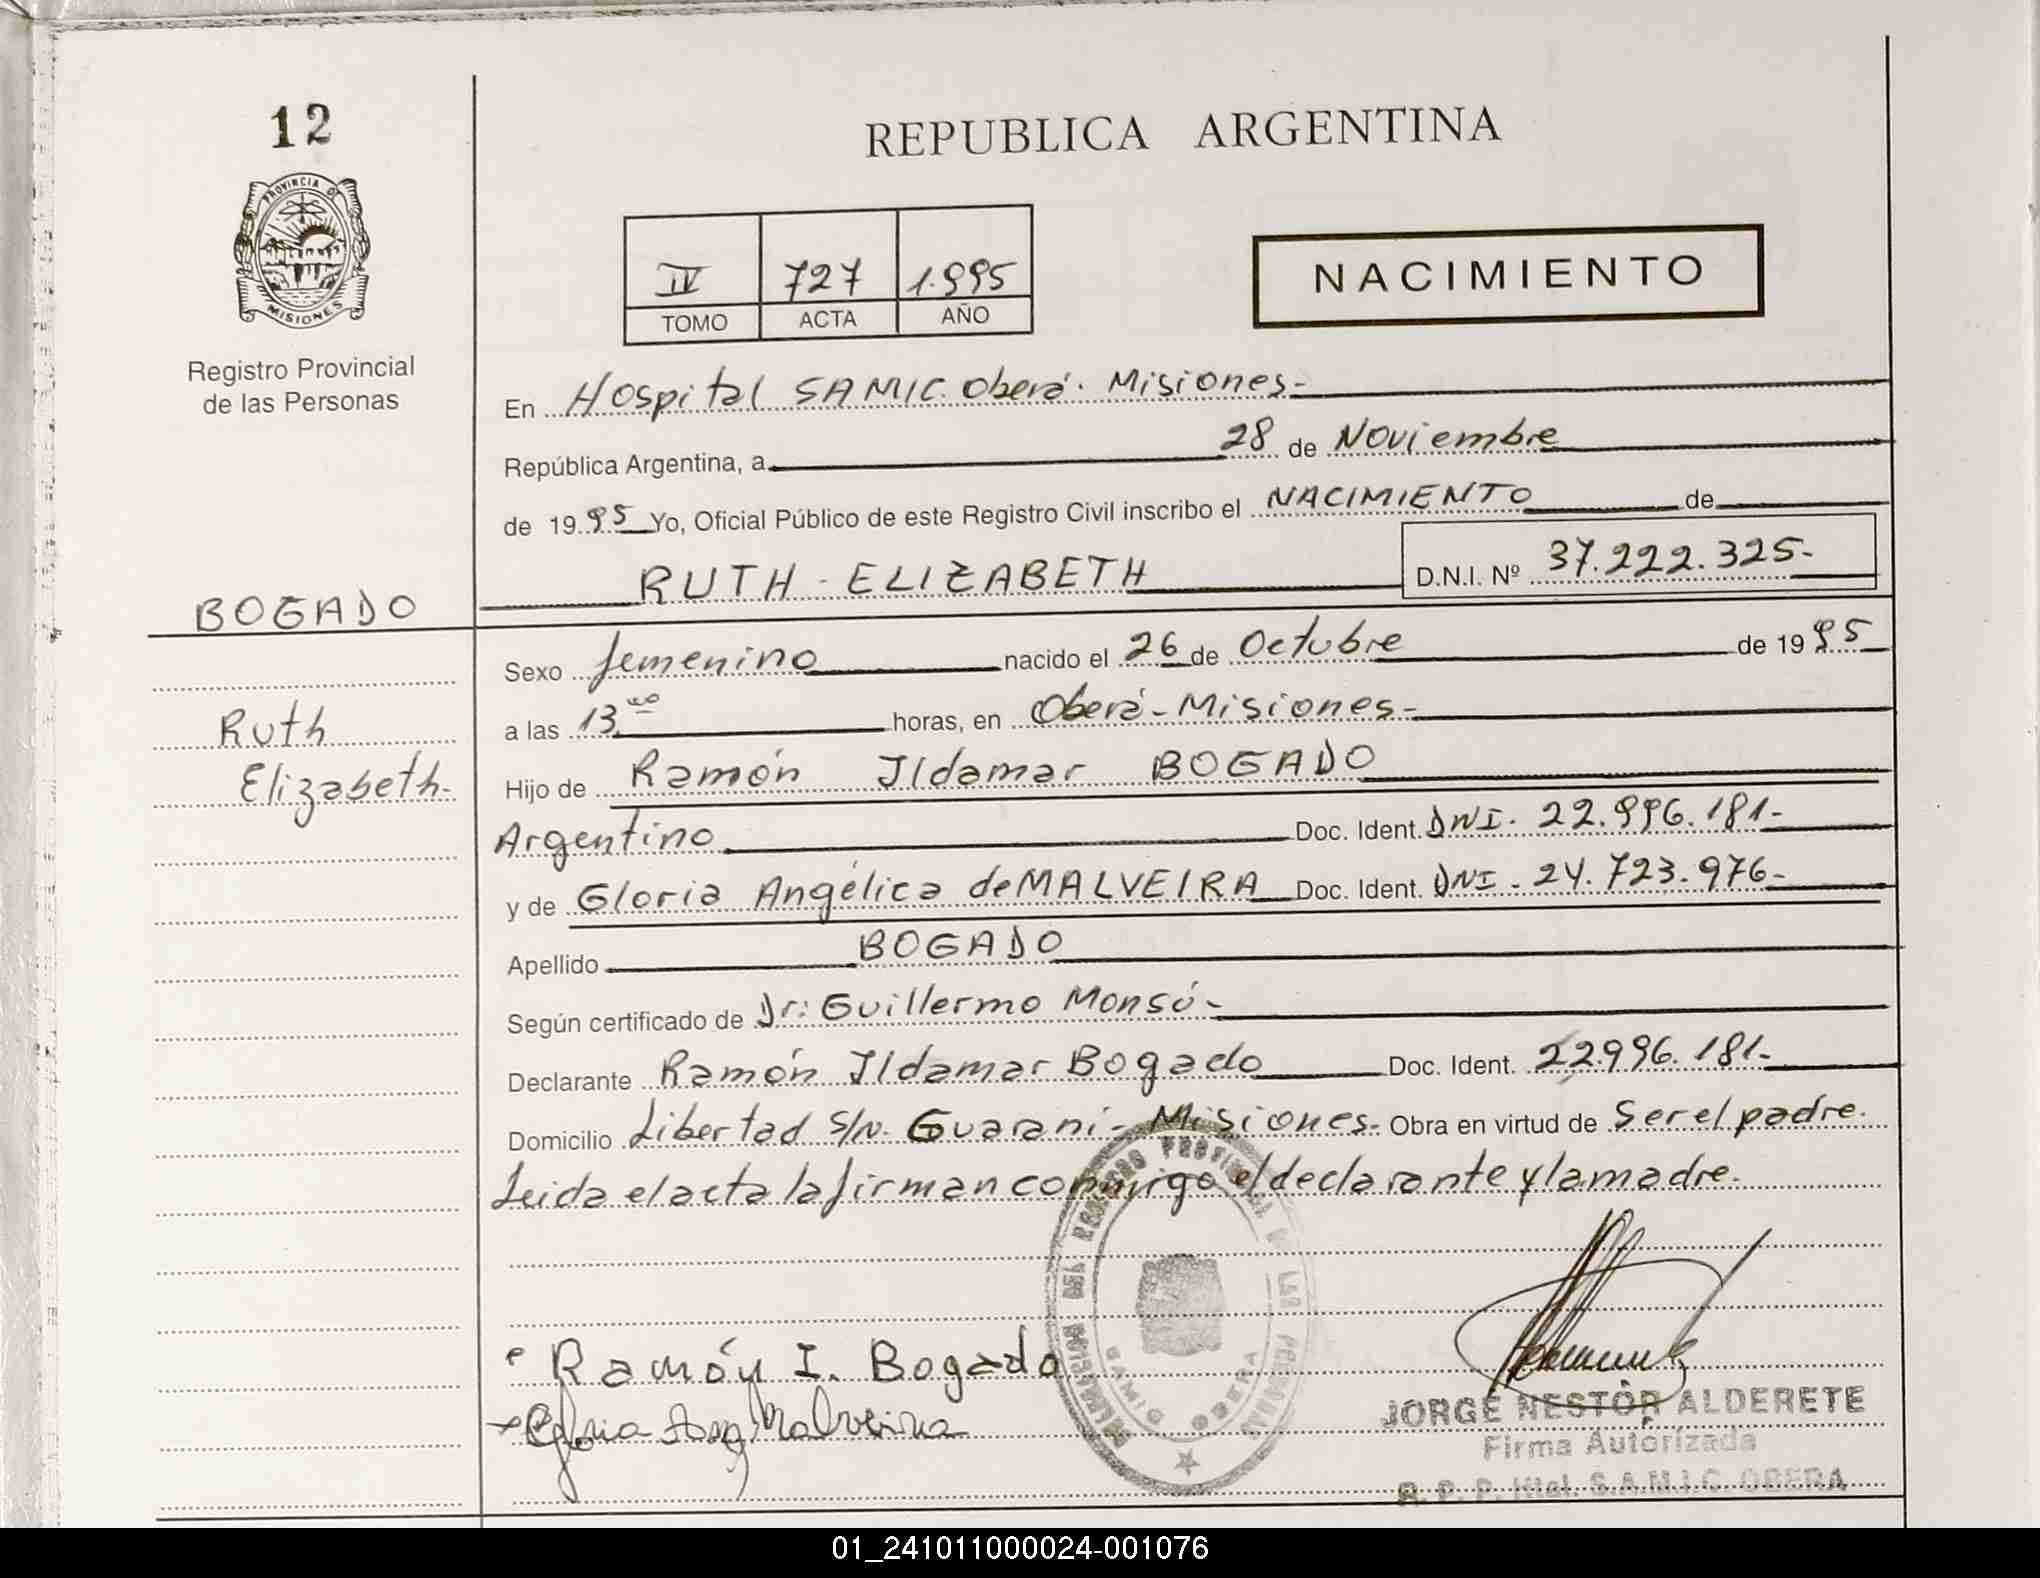 12
PROVINCIA DE
MISIONES
Registro Provincial
de las Personas
BOGADO
Ruth
Elizabeth.-
REPUBLICA ARGENTINA
IV 727 1.995
TOMO ACTA AÑO
NACIMIENTO
En Hospital SAMIC. Oberá. Misiones-
República Argentina, a 28 de Noviembre
de 19 95 Yo, Oficial Público de este Registro Civil inscribo el NACIMIENTO de
RUTH - ELIZABETH D.N.I. Nº 37.222.325-
Sexo femenino nacido el 26 de Octubre de 19 95
a las 13.00 horas, en Oberá - Misiones.-
Hijo de Ramón Ildamar BOGADO
Argentino Doc. Ident. DNI. 22.996.181-
y de Gloria Angélica de MALVEIRA Doc. Ident. DNI - 24.723.976-
Apellido BOGADO
Según certificado de Dr: Guillermo Monsó-
Declarante Ramón Ildamar Bogado Doc. Ident. 22.996.181-
Domicilio Libertad S/N. Guaraní - Misiones- Obra en virtud de Ser el padre.
Leida el acta la firman conmigo el declarante y la madre.
DEL REGISTRO PROVINCIAL DE LAS PERSONAS
SAMIC OBERA
Ramón I. Bogado
Gloria Ang Malveira
JORGE NESTOR ALDERETE
Firma Autorizada
R. P. P. Htal. S.A.M.I.C. OBERA
01_241011000024-001076